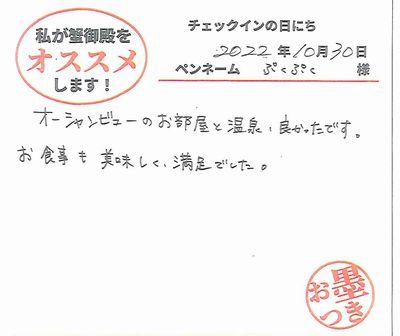 私が蟹御殿を
オススメ
します！
チェックインの日にち
2022年10月30日
ペンネーム ぷくぷく 様
オーシャンビューのお部屋と温泉、良かったです。
お食事も美味しく、満足でした。
お墨つき